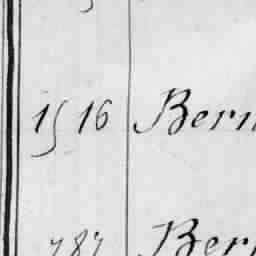 1516 Bern
787 Ber